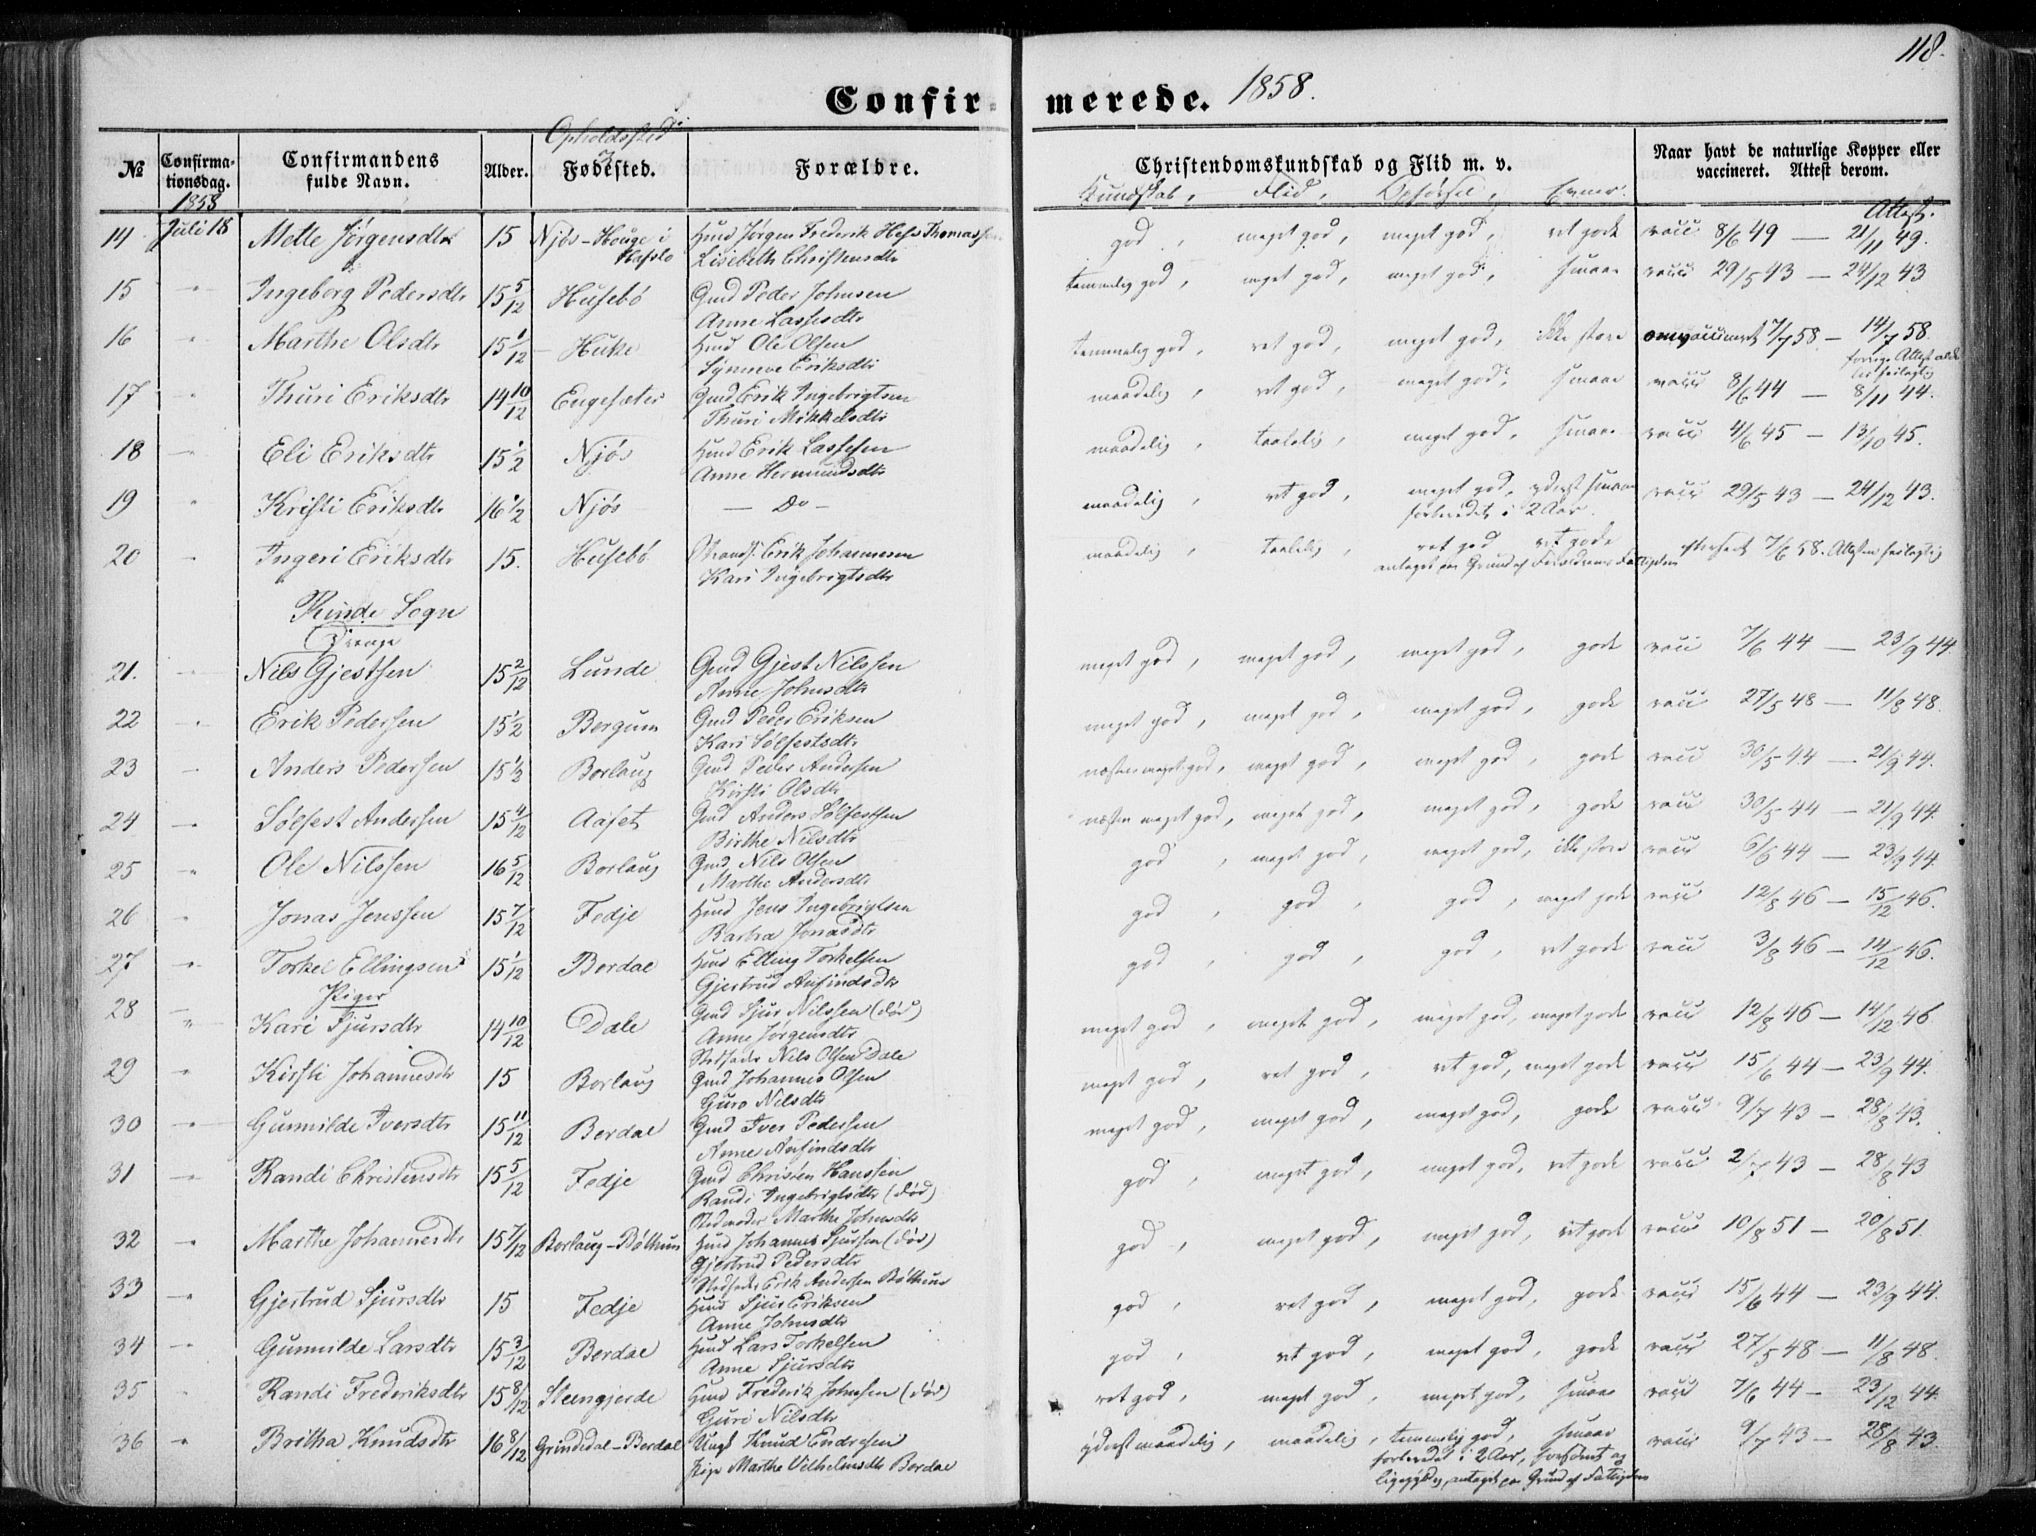 118.
Confirmerede. 1858.
Opholdssted &
№ Confirmationsdag. Confirmandens fulde Navn. Alder. Fødested. Forældre. Christendomskundskab og Flid m. v. Naar havt de naturlige Kopper eller vaccineret. Attest derom.
1858 Kundskab, Flid, Opførsel, Evner. Attest.
14 Juli 18 Mette Jørgensdtr 15 Njøs-Houge i Hafslo Huusm Jørgen Frederik Hess Thomassen god, meget god, meget god, ret gode vacc 8/6 49 — 21/11 49.
Lisebeth Christensdtr
15 " Ingeborg Pedersdtr 15 5/12 Husebø Gmd Peder Johnsen temmelig god, meget god, meget god, smaae vacc 29/5 43 — 24/12 43
Anne Lassesdtr
16 " Marthe Olsdtr 15 1/12 Huke Hmd Ole Olsen temmelig god, ret god, meget god, ikke store omvaccineret 7/7 58 — 14/7 58.
Synneve Eriksdtr
17 " Thuri Eriksdtr 14 10/12 Engesæter Gmd Erik Ingebrigtsen maadelig, ret god, meget god, smaae vacc 8/6 44 — 8/11 44.
Thuri Mikkelsdtr
18 " Eli Eriksdtr 15 1/2 Njøs Hmd Erik Lassesen maadelig, taalelig, meget god, smaae vacc 4/6 45 — 13/10 45.
Anne Hermundsdtr
19 " Kristi Eriksdtr 16 1/2 Njøs — Do — maadelig, ret god, meget god, yderst smaae vacc 29/5 43 — 24/12 43.
forberedet i 2 Aar.
20 " Ingeri Eriksdtr 15. Husebø Strands. Erik Johannesen maadelig, taalelig, ret god ret gode 7/6 58. Attesten feilagtig
Kari Ingebrigtsdtr antaget paa Grund af Forældrenes Fattigdom
Rinde Sogn
Drenge
21. " Nils Gjestsen 15 2/12 Lunde Gmd Gjest Nilssen meget god, meget god, meget god, gode vacc 7/6 44 — 23/9 44.
Anne Johnsdtr
22 " Erik Pedersen 15 1/2 Bergum Gmd Peder Eriksen meget god, meget god, meget god, gode vacc 27/5 48 — 11/8 48.
Kari Sølfestsdtr
23 — Anders Pedersen 15 1/2 Borlaug Gmd Peder Andersen næsten meget god, meget god, meget god, gode vacc 30/5 44 — 21/9 44.
Kirsti Olsdtr
24 " Sølfest Andersen 15 4/12 Aaset Gmd Anders Sølfestsen næsten meget god, meget god, meget god, gode vacc 30/5 44 — 21/9 44.
Birthe Nilsdtr
25 " Ole Nilssen 16 5/12 Borlaug Gmd Nils Olsen god, meget god, meget god, ikke store vacc 6/6 44 — 23/9 44
Marthe Andersdtr
26 " Jonas Jenssen 15 7/12 Fedje Hmd Jens Ingebrigtsen god, god, god, meget gode vacc 12/8 46 — 15/12 46.
Barbra Jonasdtr
27 " Torkel Ellingsen 15 1/12 Berdal Hmd Elling Torkelsen god, god, god, ret gode vacc 3/8 46 — 14/12 46.
Gjertrud Anfindsdtr
Piger
28 " Kari Sjursdtr 14 10/12 Dale Gmd Sjur Nilssen (død) meget god, meget god, meget god, meget gode vacc 12/8 46 — 14/12 46
Anne Jørgensdtr
Stedfader Nils Olsen Dale
29 " Kirsti Johannesdtr 15 Borlaug Gmd Johannes Olsen meget god, ret god, ret god, meget gode vacc 15/6 44 — 23/9 44.
Guro Nilsdtr
30 " Gunnilde Iversdtr 15 11/12 Berdal Gmd Iver Pedersen meget god, meget god, meget god, gode vacc 9/7 43 — 28/8 43.
Anne Anfindsdtr
31 " Randi Christensdtr 15 5/12 Fedje Gmd Christen Hanssen god, meget god, meget god, ret gode vacc 2/7 43 — 28/8 43
Randi Ingebrigtsdtr (død)
Stedmoder Marthe Johnsdtr
32 " Marthe Johannesdtr 15 7/12 Borlaug-Bøthun Hmd Johannes Sjursen (død) god, meget god, meget god, ret gode vacc 10/8 51 — 20/8 51.
Gjertrud Pedersdtr
Stedfader Erik Andersen Bøthun
33 " Gjertrud Sjursdtr 15 Fedje Hmd Sjur Eriksen god, ret god, meget god, gode vacc 15/6 44 — 23/9 44.
Anne Johnsdtr
34 " Gunnilde Larsdtr 15 3/12 Berdal Hmd Lars Torkelsen god, ret god, meget god, gode vacc 27/5 48 — 11/8 48.
Anne Sjursdtr
35 " Randi Frederiksdtr 15 8/12 Steengjerde Hmd Frederik Johnsen (død) ret god, meget god, meget god, smaae vacc 7/6 44 — 23/12 44.
Guri Nilsdtr
36 " Britha Knudsdtr 16 8/12 Grindedal-Berdal Ungk Knud Endresen yderst maadelig, maadelig, temmelig god, smaae vacc 9/7 43 — 28/8 43.
Pige Marthe Vilhelmsdtr Berdal forberedet i 2 Aar, forsømt og
ligegyldig, antaget paa Grund af Fattigdom